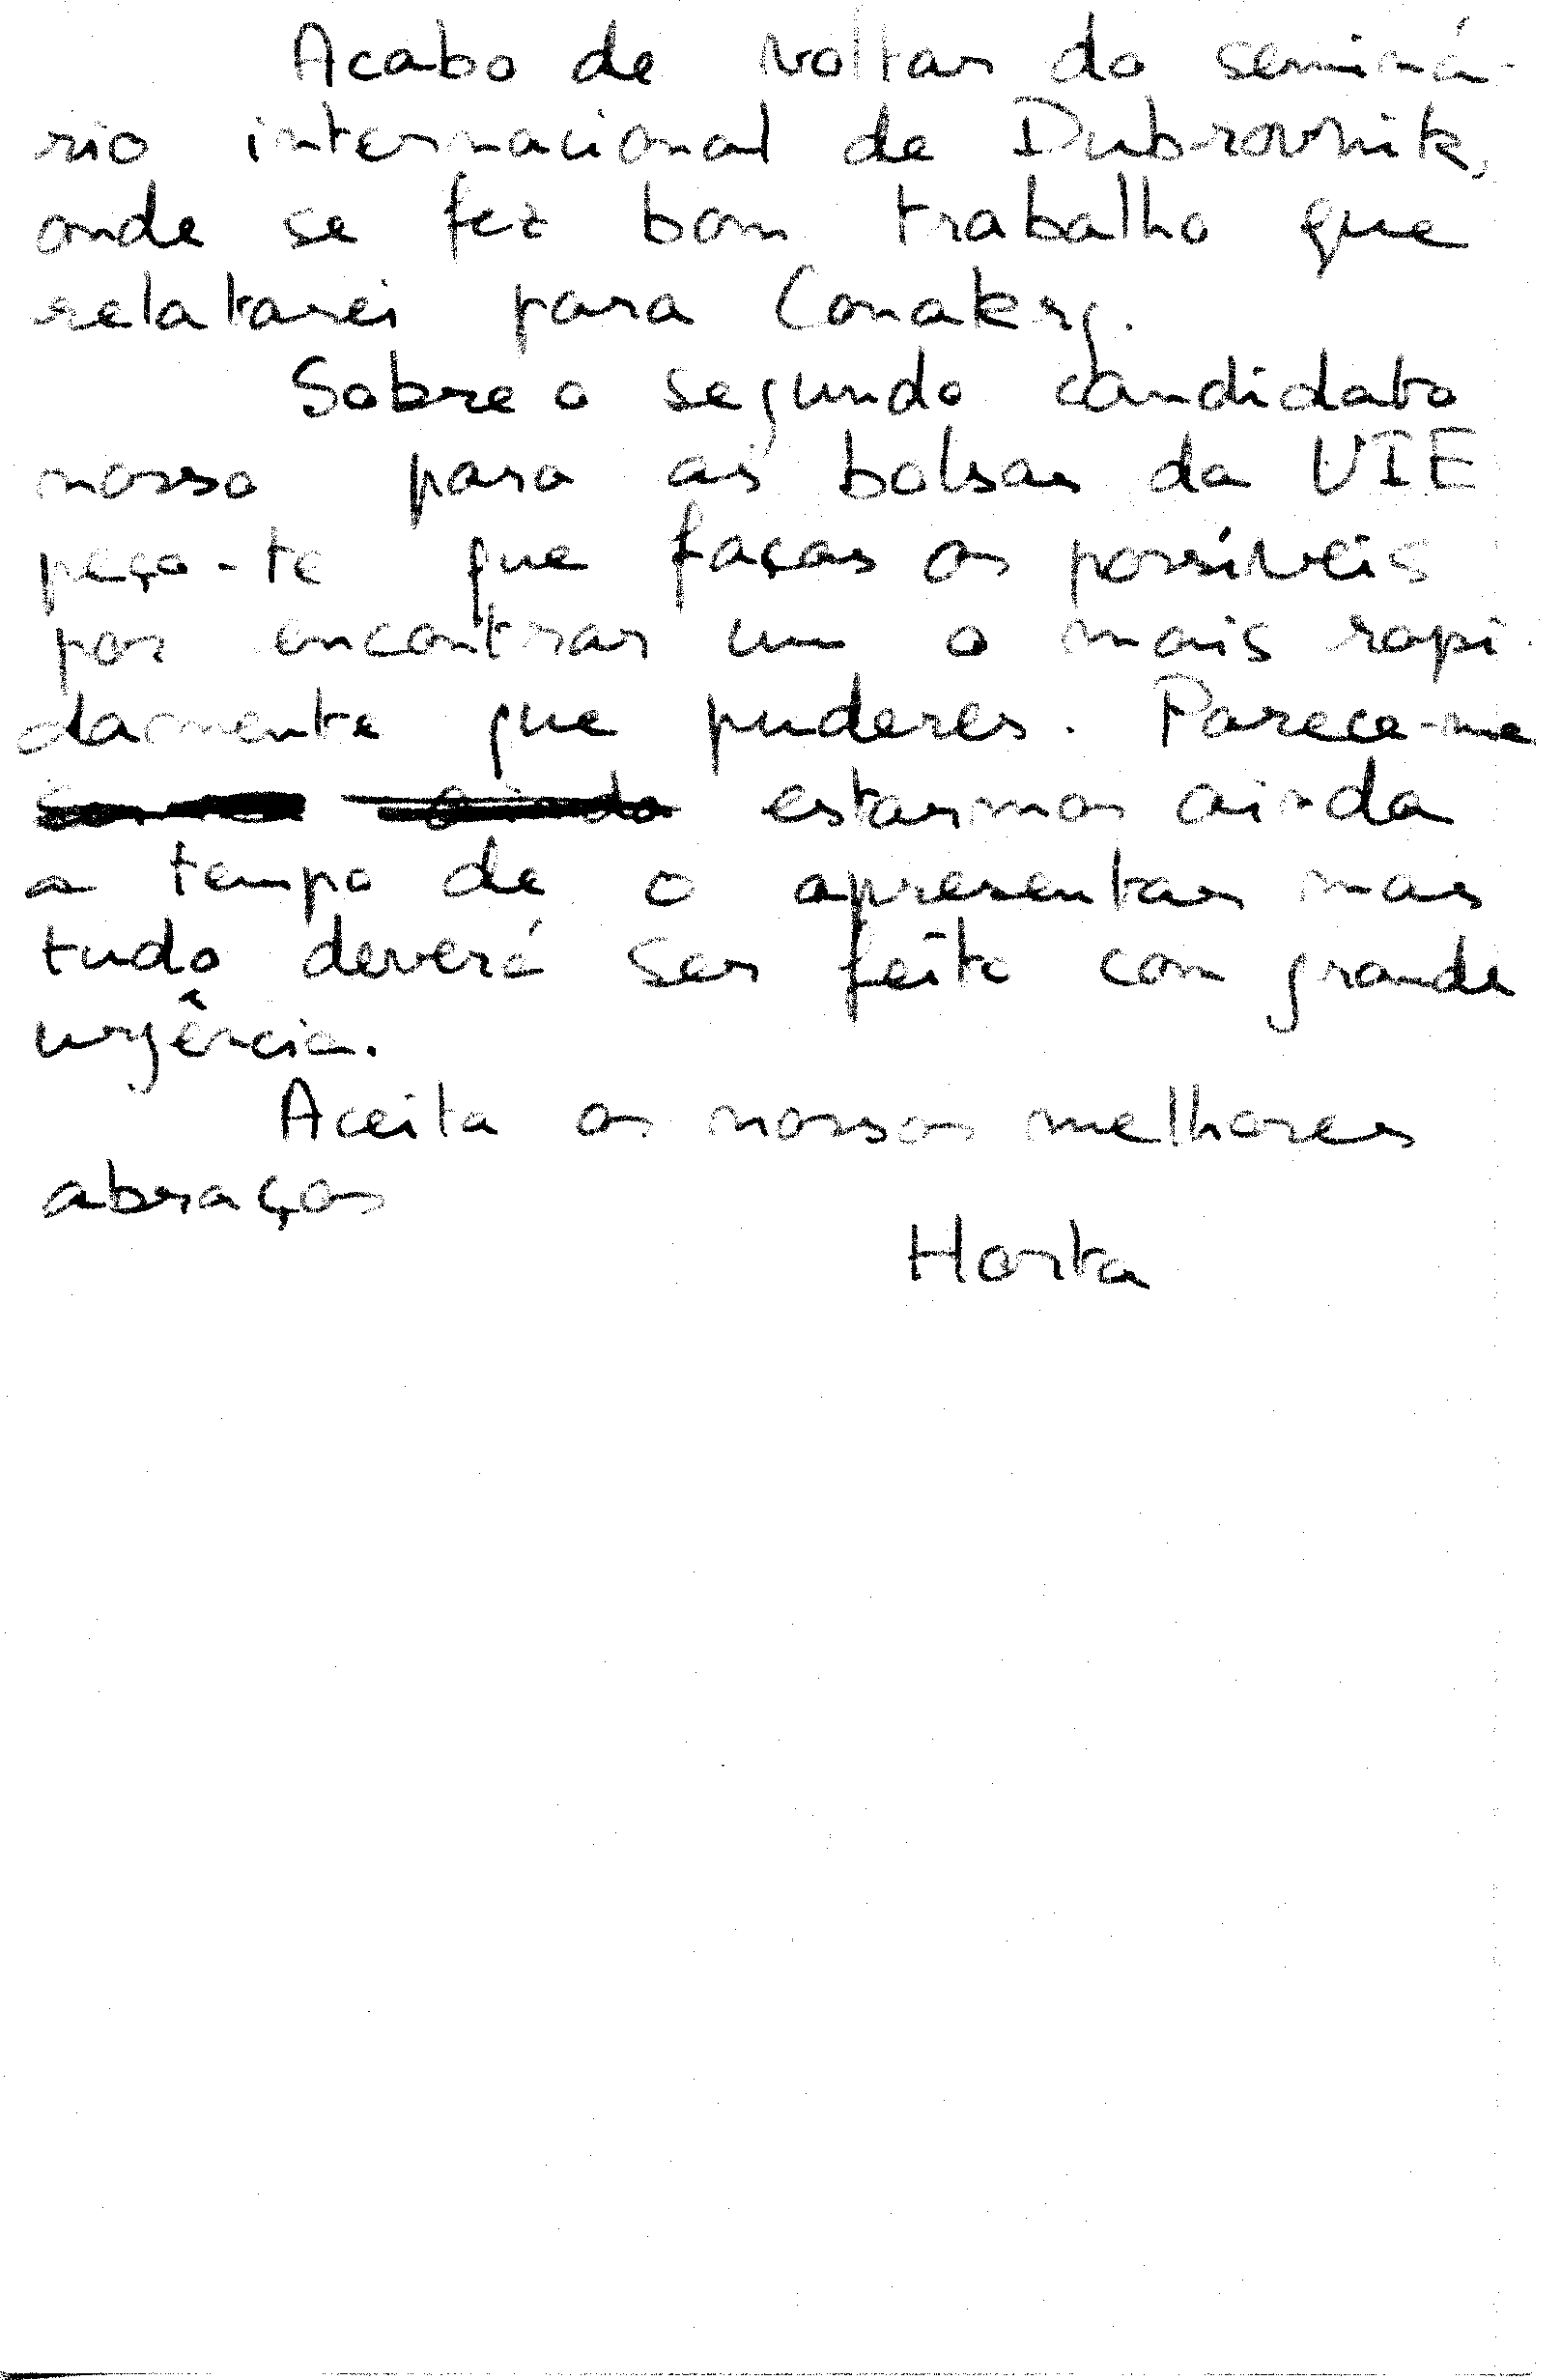 Acabo de voltar do seminá-
rio internacional de Dubrovnik,
onde se fez bom trabalho que
relatarei para Conakry.
Sobre o segundo candidato
nosso para as bolsas da UIE
peço-te que faças os possíveis
por encontrar um o mais rapi-
damente que puderes. Parece-me
estarmos ainda
a tempo de o apresentar mas
tudo deverá ser feito com grande
urgência.
Aceita os nossos melhores
abraços
Horta